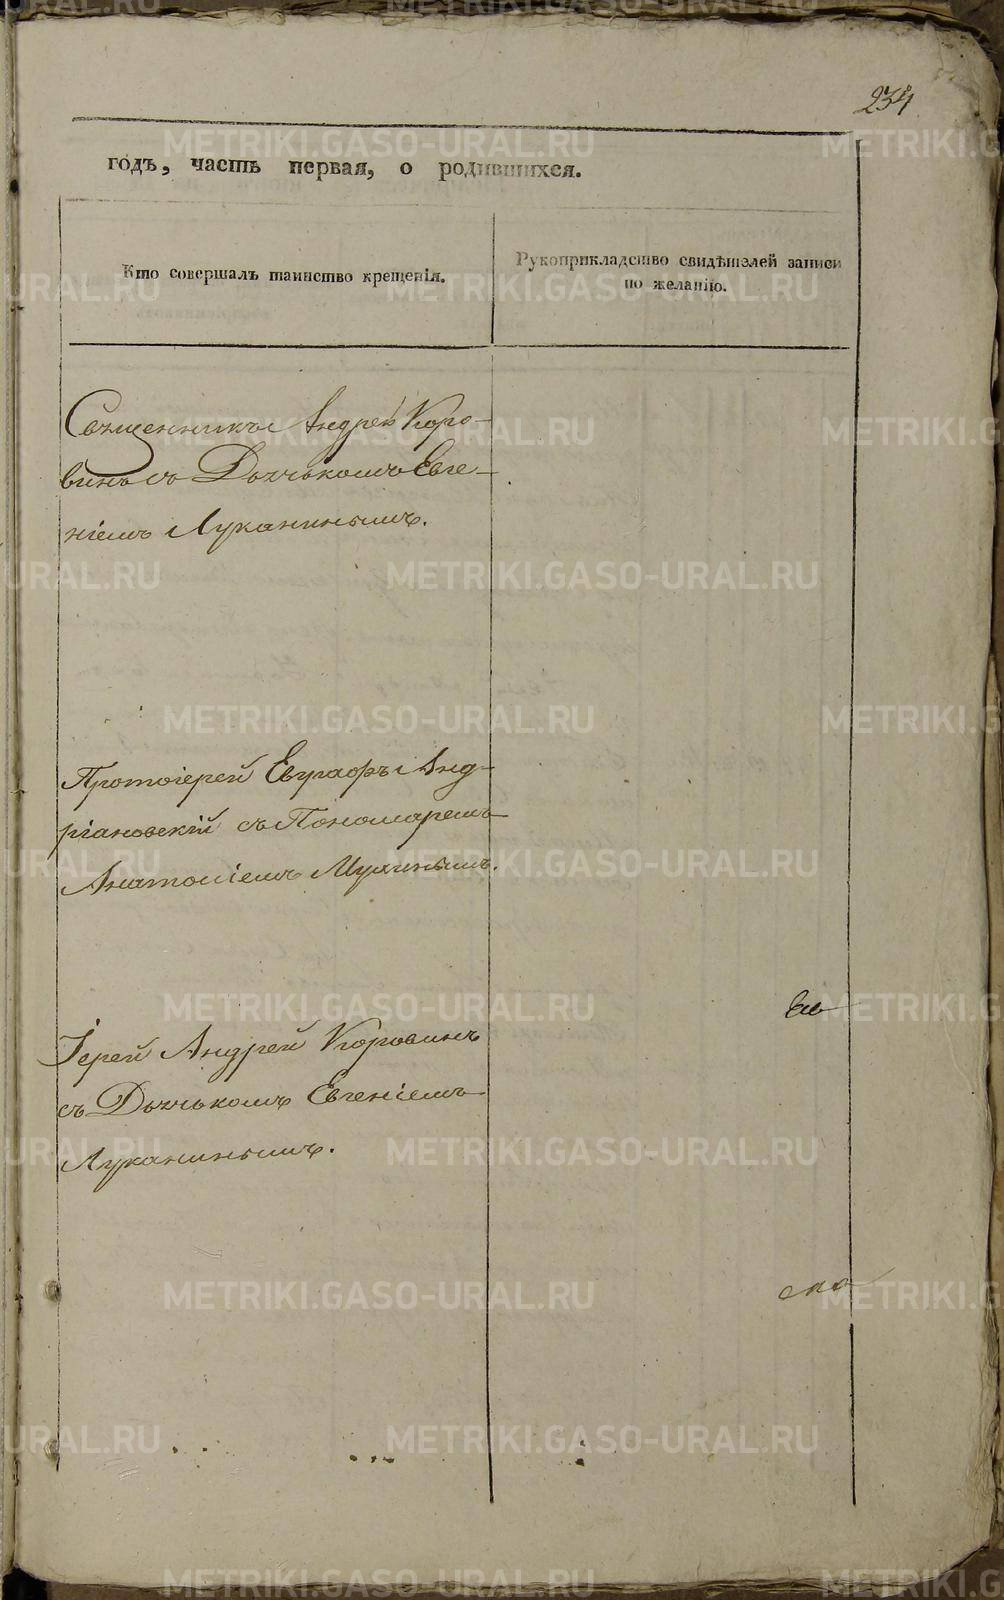 234
годъ, часть первая, о родившихся.
Кто совершалъ таинство крещенія.
Рукоприкладство свидѣтелей записи
по желанію.
Священникъ Андрей Коро-
винъ съ Дьячькомъ Евге-
ніемъ Луканинымъ.
Протоіерей Евграфъ Анд-
ріановскій съ Пономаремъ
Анатоліемъ Мухинымъ.
Іерей Андрей Коровинъ
съ Дьячькомъ Евгеніемъ
Луканинымъ.
METRIKI.GASO-URAL.RU